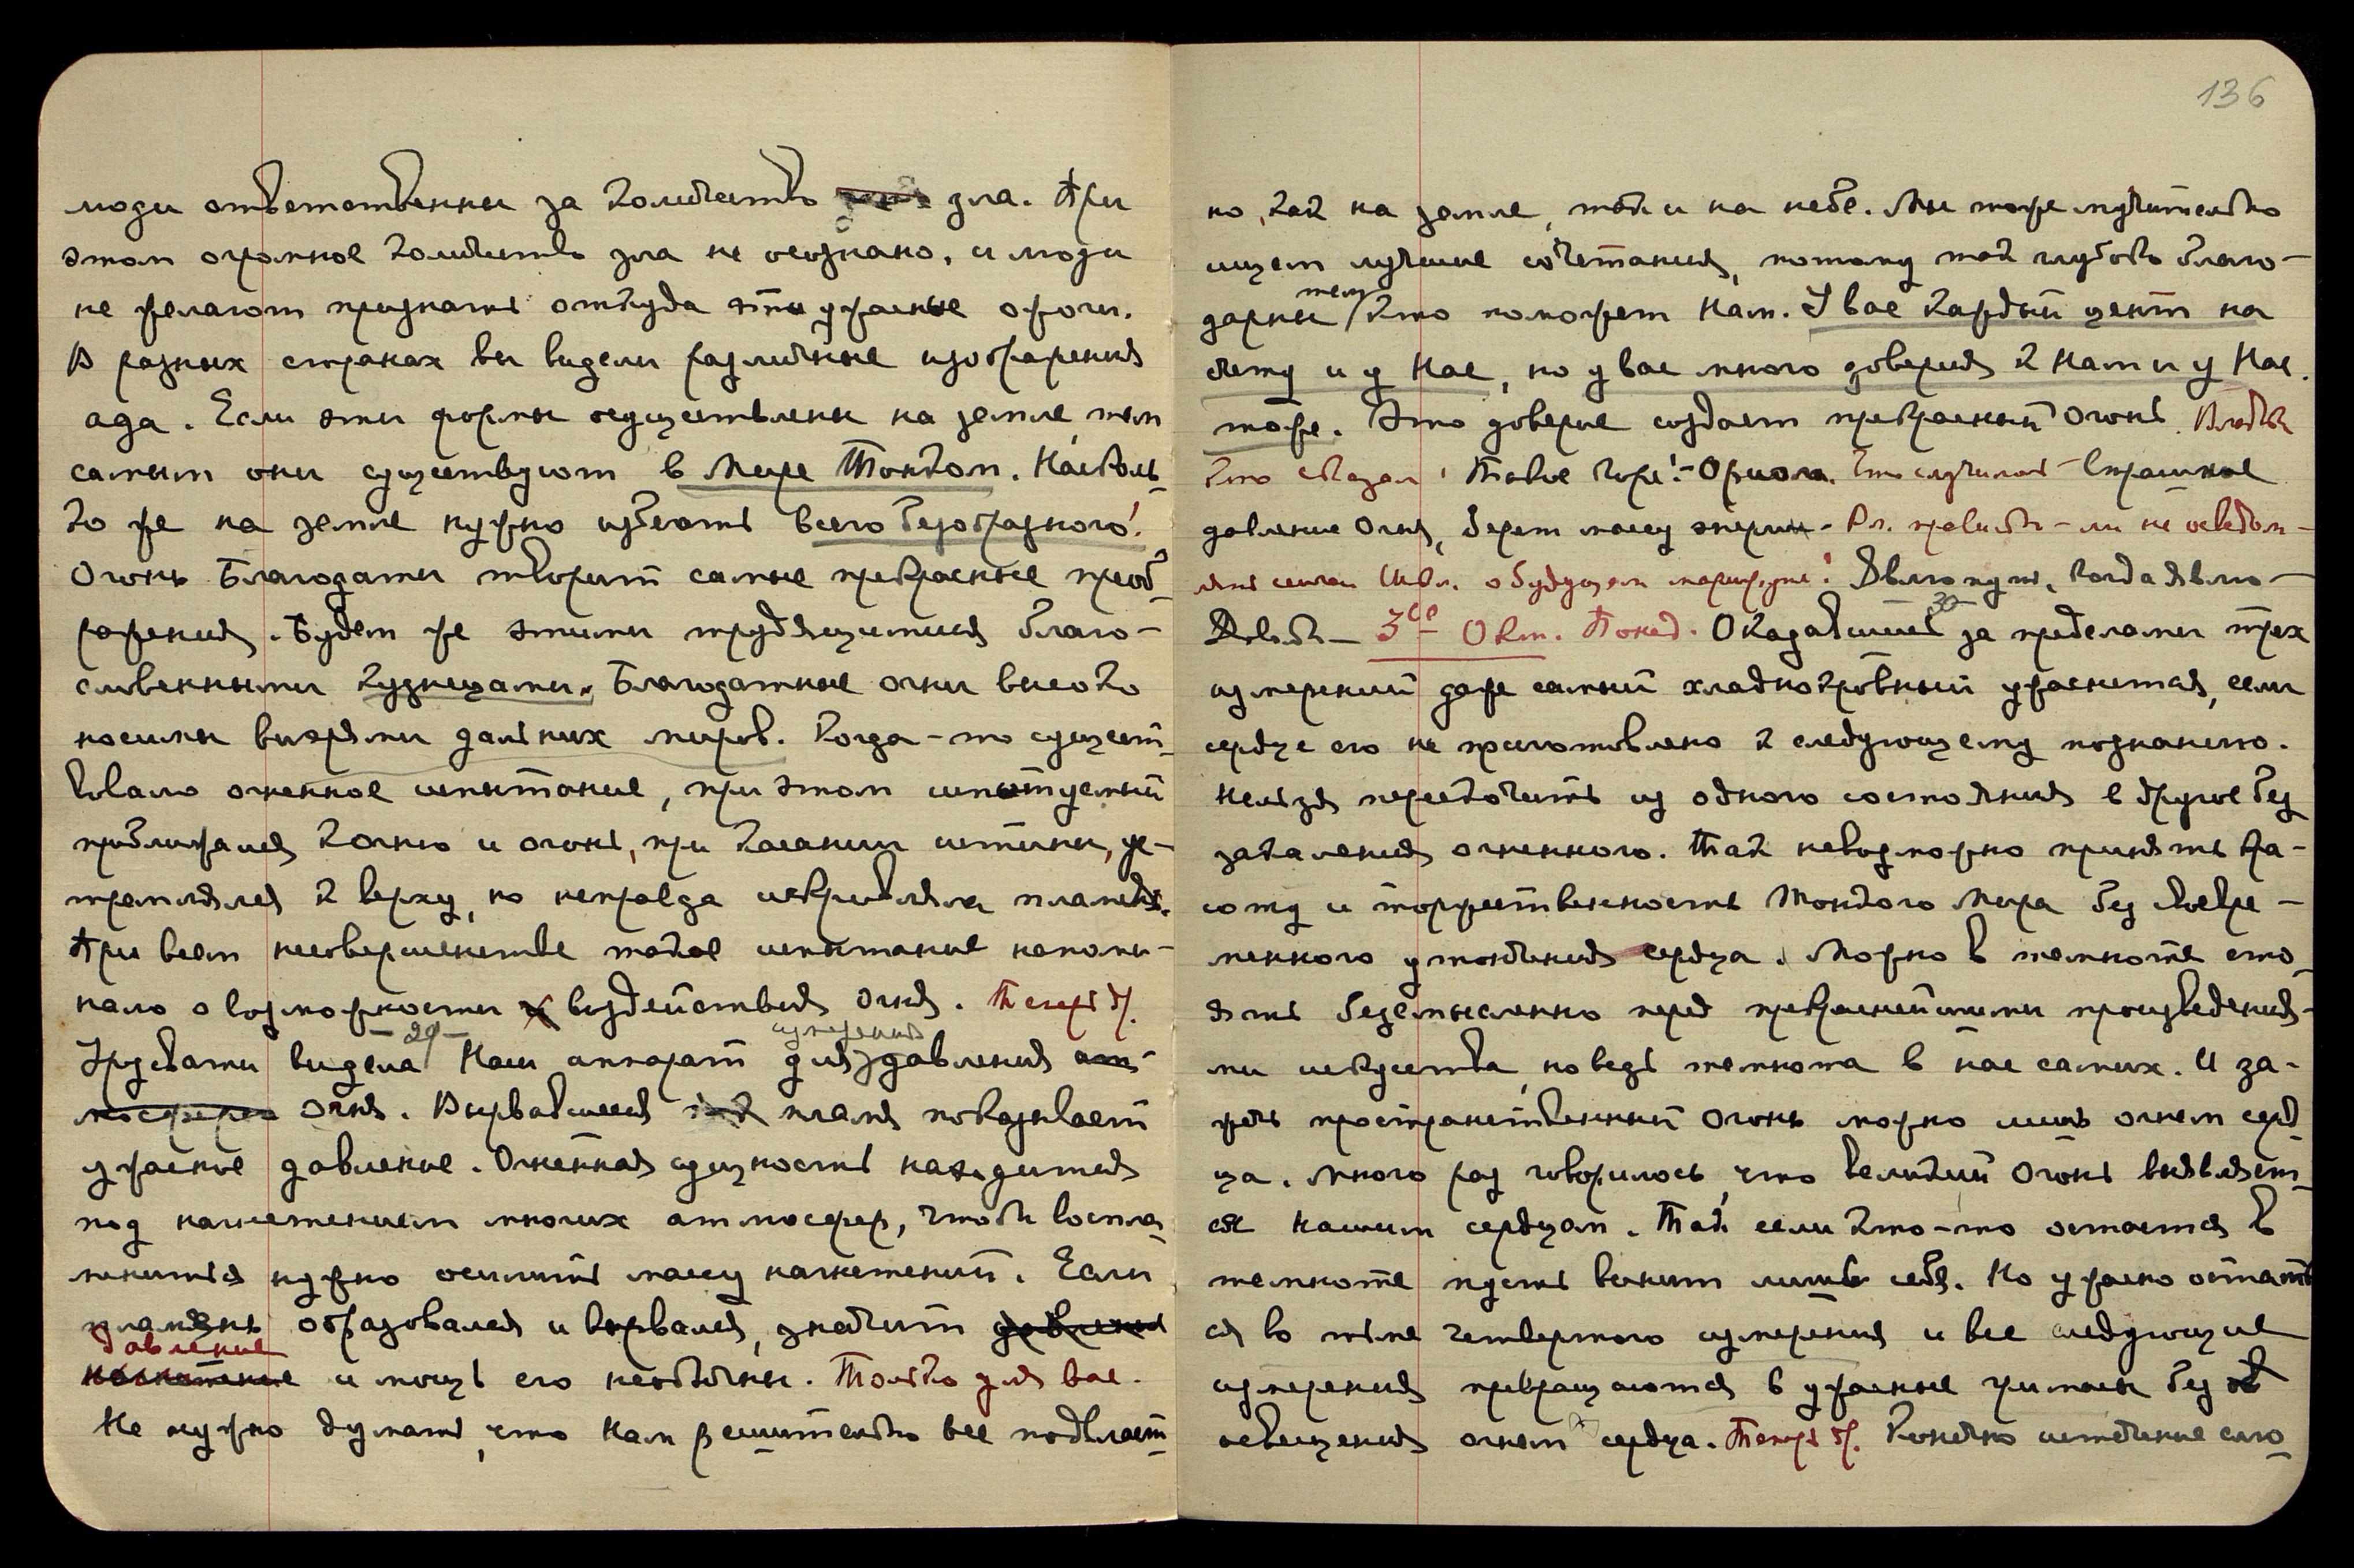 люди ответственны за количество зла. При
этом огромное количество зла не осознано, и люди
не желают признать откуда эти ужасные ожоги.
В разных странах вы видели различные изображения
ада. Если эти формы осуществлены на земле, тем
самым они существуют в Мире Тонком. Насколь-
ко же на земле нужно избегать всего безобразного!
Огонь Благодати творит самые прекрасные преоб-
ражения. Будем же этими трудящимися благо-
словенными кузнецами. Благодатные огни высоко
носимы вихрями дальних миров. Когда-то сущест-
вовало огненное испытание, при этом испытуемый
приближался к огню и огонь, при касании истины, ус-
тремлялся к верху, но неправда искривляла пламень.
При всем несовершенстве такое испытание напоми-
нало о возможности воздействия Огня. Теперь др.
— 29 —
измерения
Урусвати видела Наш аппарат для давления ат-
мосферы Огня. Вырвавшееся пламя показывает
ужасное давление. Огненная сущность находится
под нагнетением многих атмосфер, чтобы воспла-
мениться нужно осилить массу нагнетений. Если
пламень образовался и вырвался, значит давление
давление
нагнетение и мощь его необычны. Только для вас.
Не нужно думать, что Нам решительно все подвласт-
136
но, как на земле, так и на небе. Мы тоже мучительно
ищем лучшие сочетания, потому так глубоко благо-
тем
дарны кто поможет Нам. У вас каждый цент на
счету и у Нас, но у вас много доверия к Нам и у Нас
тоже. Это доверие создает прекрасный Огонь.
кто сказал: Такое горе! - Ориола. Что случилось - Страшное
давление Огня, берет массу энергии - Вл. правильно-ли не осведом-
лять сейчас Шкл. о будущем маршруте! Явлю путь, когда явлю
Довольно — 3го Окт. Понед. Оказавшись за пределами трех
30
измерений даже самый хладнокровный ужаснется, если
сердце его не приготовлено к следующему познанию.
Нельзя перескочить из одного состояния в другое без
закаления огненного. Так невозможно принять кра-
соту и торжественность Тонкого Мира без своевре-
менного утончения сердца. Можно в темноте сто-
ять бессмысленно перед прекраснейшими произведения-
ми искусства, но ведь темнота в нас самих. И за-
жечь пространственный Огонь можно лишь огнем серд-
ца. Много раз говорилось, что великий Огонь выявляет-
ся нашим сердцем. Так если кто-то остается в
темноте пусть винит лишь себя. Но ужасно остать-
ся во тьме четвертого измерения и все следующие
измерения превращаются в ужасные гримасы без
освещения огнем сердца. Теперь др. Конечно истечение слю-